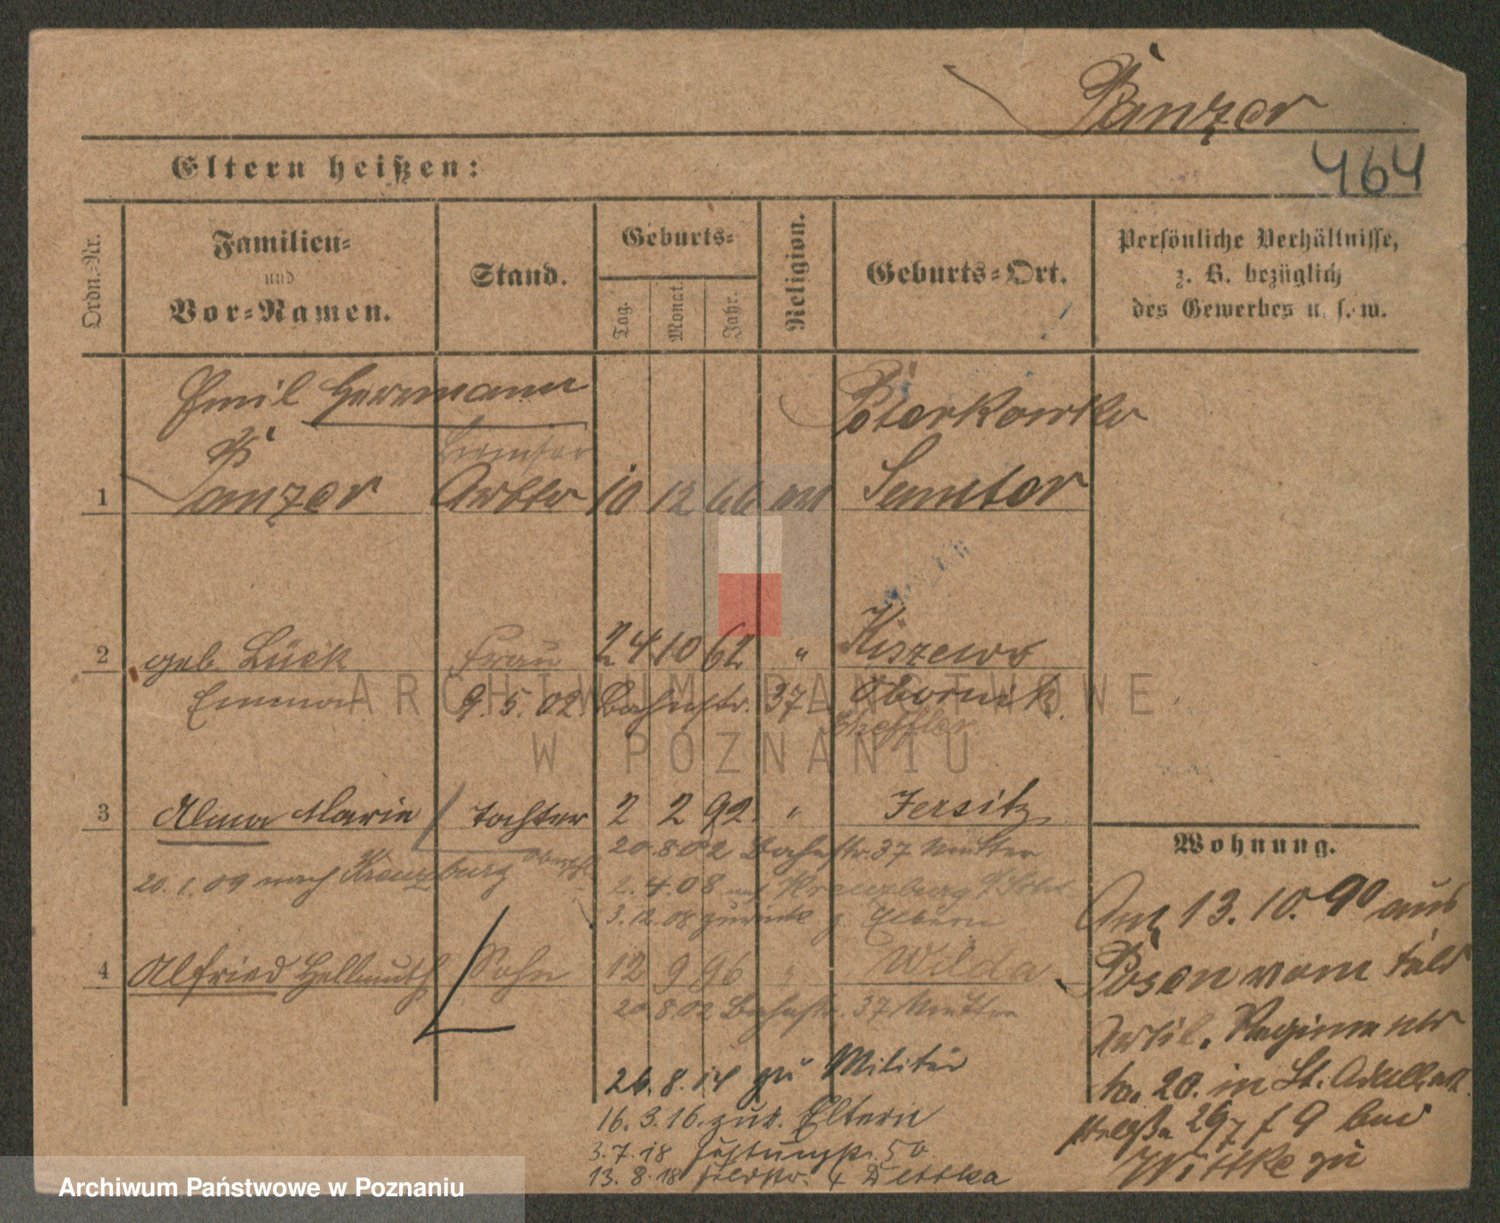 Panzer
464
Eltern heißen:
Ordn.-Nr.
Familien-
und
Vor-Namen.
Stand.
Geburts-
Tag.
Monat.
Jahr.
Religion.
Geburts-Ort.
Persönliche Verhältnisse,
z. B. bezüglich
des Gewerbes u. s. w.
Emil Herrmann
Panzer
1
10 12 66
Samter
2
geb. Lück
Frau
24 10 62 "
Kiszewo
Emma
9.5.02 Bahnstr. 37
Obornik
3
Alma Marie
Tochter
2 2 92 "
Jersitz
20.8.02 Bahnstr. 37 Mutter
20.1.09 nach Kreuzburg
2.4.08 Kreuzburg
3.12.08 zurück z. Eltern
4
Alfried Hellmuth
Sohn
12 9 96 "
Wilda
20.8.02 Bahnstr. 37 Mutter
26.8.14 zu Militär
16.3.16. zur. Eltern
3.7.18 Festungstr. 50
13.8.18 Feldstr. 4
Wohnung.
Am 13.10.90 aus
Posen vom Feld
Artil. Regiment
No. 20. in St. Adalbert
29
Wittke zu
ARCHIWUM PAŃSTWOWE
W POZNANIU
Archiwum Państwowe w Poznaniu